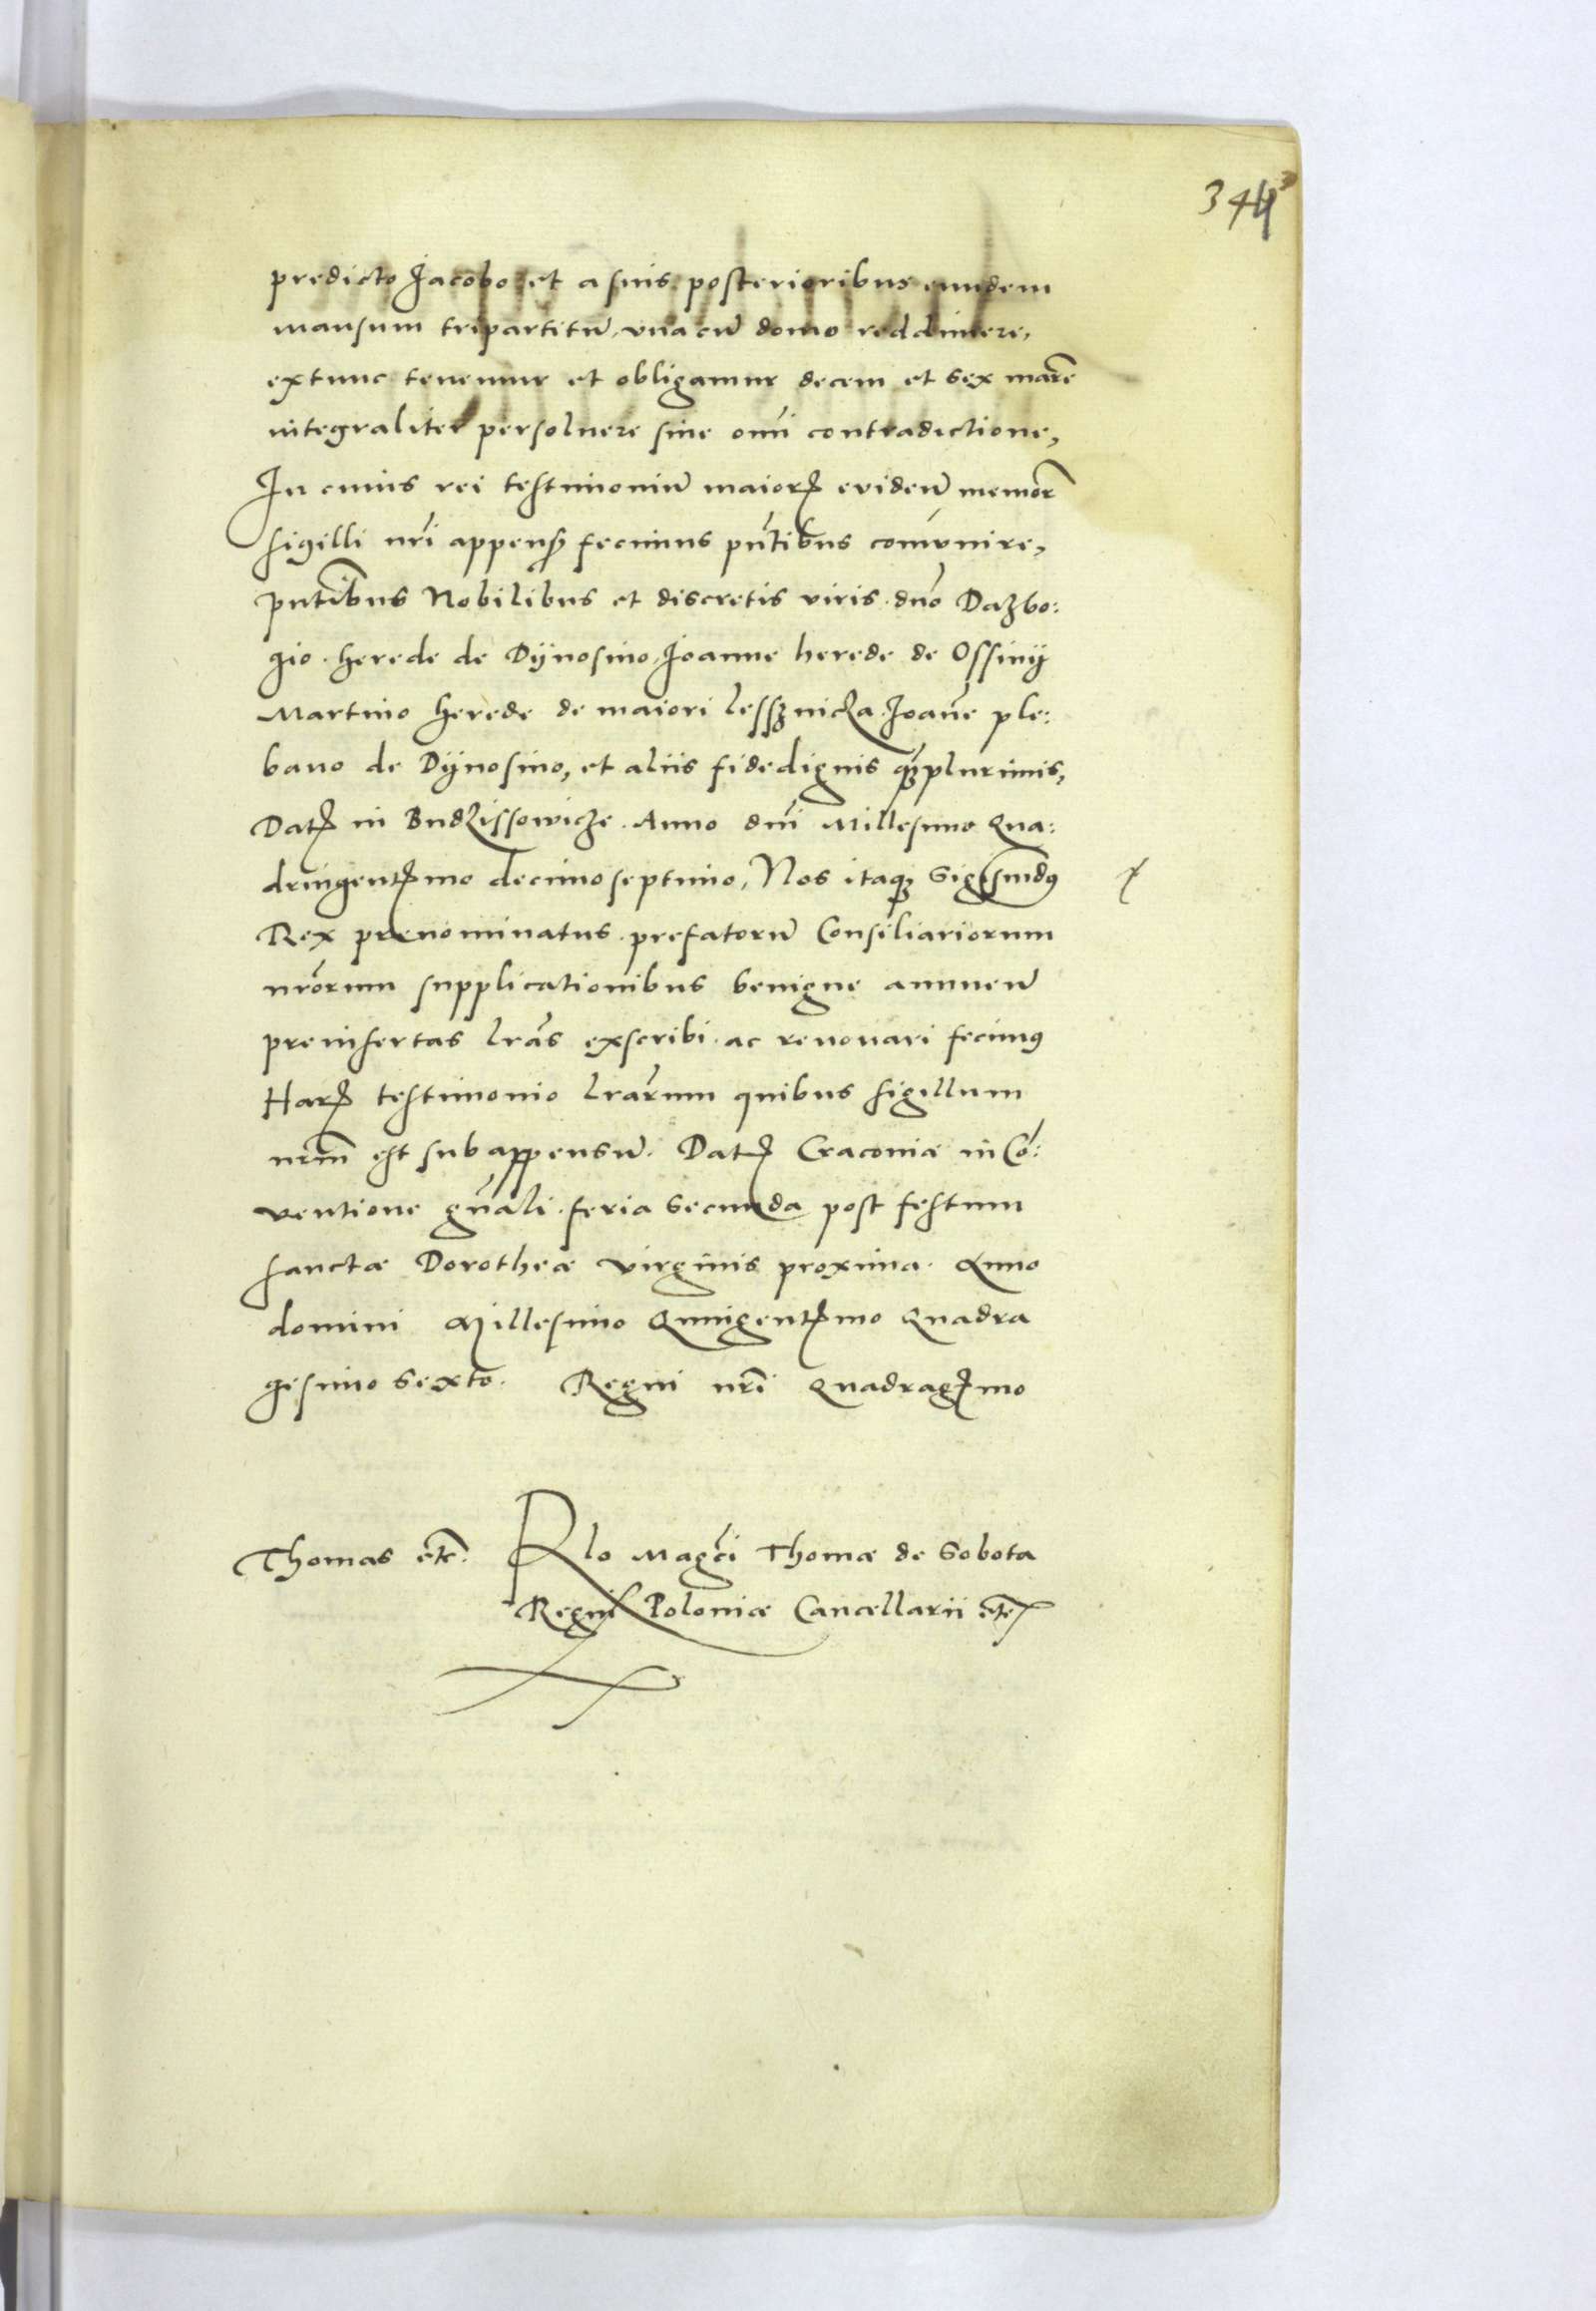 predicto Jacobo et a suis posterioribus eundem
mansum tripartitū, vna cū domo reddimere,
extunc tenemur et obligamur decem et sex marc̄
integraliter persoluere sine om̄i contradictione,
In cuius rei testimoniū maiorꝫ eviden̄ memor̄
sigilli nr̄i appensꝫ fecimus pn̄tibus com̄vnire,
pn̄tibus Nobilibus et discretis viris dn̄o Dazbo:
gio herede de Dÿnosino, Joanne herede de Ossinÿ
Martino herede de maiori lessznicza Joan̄e ple:
bano de Dÿnosino, et aliis fidedignis qꝫplurimis,
Datꝫ in Budzissowicze Anno dn̄i Millesimo Qua:
dringentꝫmo decimoseptimo, Nos itaqꝫ Sigismd̄9
Rex prenominatus prefatorū Consiliariorum
nr̄orum supplicationibus benigne annuen̄
preinsertas lr̄as exscribi ac renouari fecim9
Harꝫ testimonio lr̄arum quibus sigillum
nr̄m est subappensū. Datꝫ Cracoviæ in Cō:
ventione gn̄ali feria secunda post festum
sanctæ Dorotheæ virginis proxima. Anno
domini Millesimo Quingentꝫmo Quadra
gesimo sexto. Regni nr̄i Quadragꝫmo
Thomas etc̄. Rlo Magc̄i Thomæ de Sobota
Regni Poloniæ Cancellarii etc̄